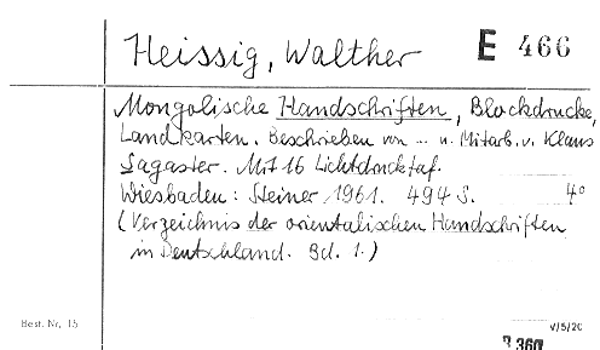 Heissig, Walther E 466
Mongolische Handschriften, Blockdrucke,
Landkarten. Beschrieben von ... u. Mitarb. v. Klaus
Sagaster. Mit 16 Lichtdrucktaf.
Wiesbaden: Steiner 1961. 494 S. 4°
(Verzeichnis der orientalischen Handschriften
in Deutschland. Bd. 1.)
Best. Nr. 15 V/5/20